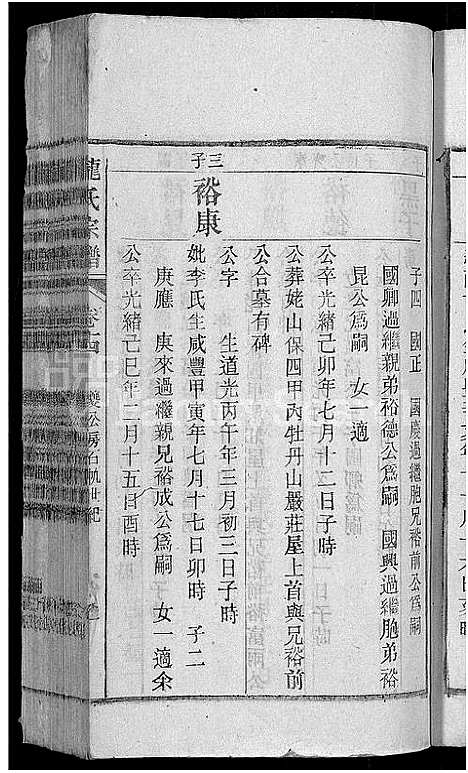 子四 國正 國慶過繼胞兄裕前公爲嗣
國卿過繼親弟裕德公爲嗣 國興過繼胞弟裕
昆公爲嗣 女一適
公卒光緒己卯年七月十二日子時
公葬姥山保四甲丙牡丹山嚴莊屋上首與兄裕前
公合墓有碑
三子
裕康
公字 生道光丙午年三月初三日子時
妣李氏生咸豐甲寅年七月十七日卯時 子二
庚應 庚來過繼親兄裕成公爲嗣 女一適余
公卒光緒己巳年二月十五日酉時
龍氏宗譜 卷十四